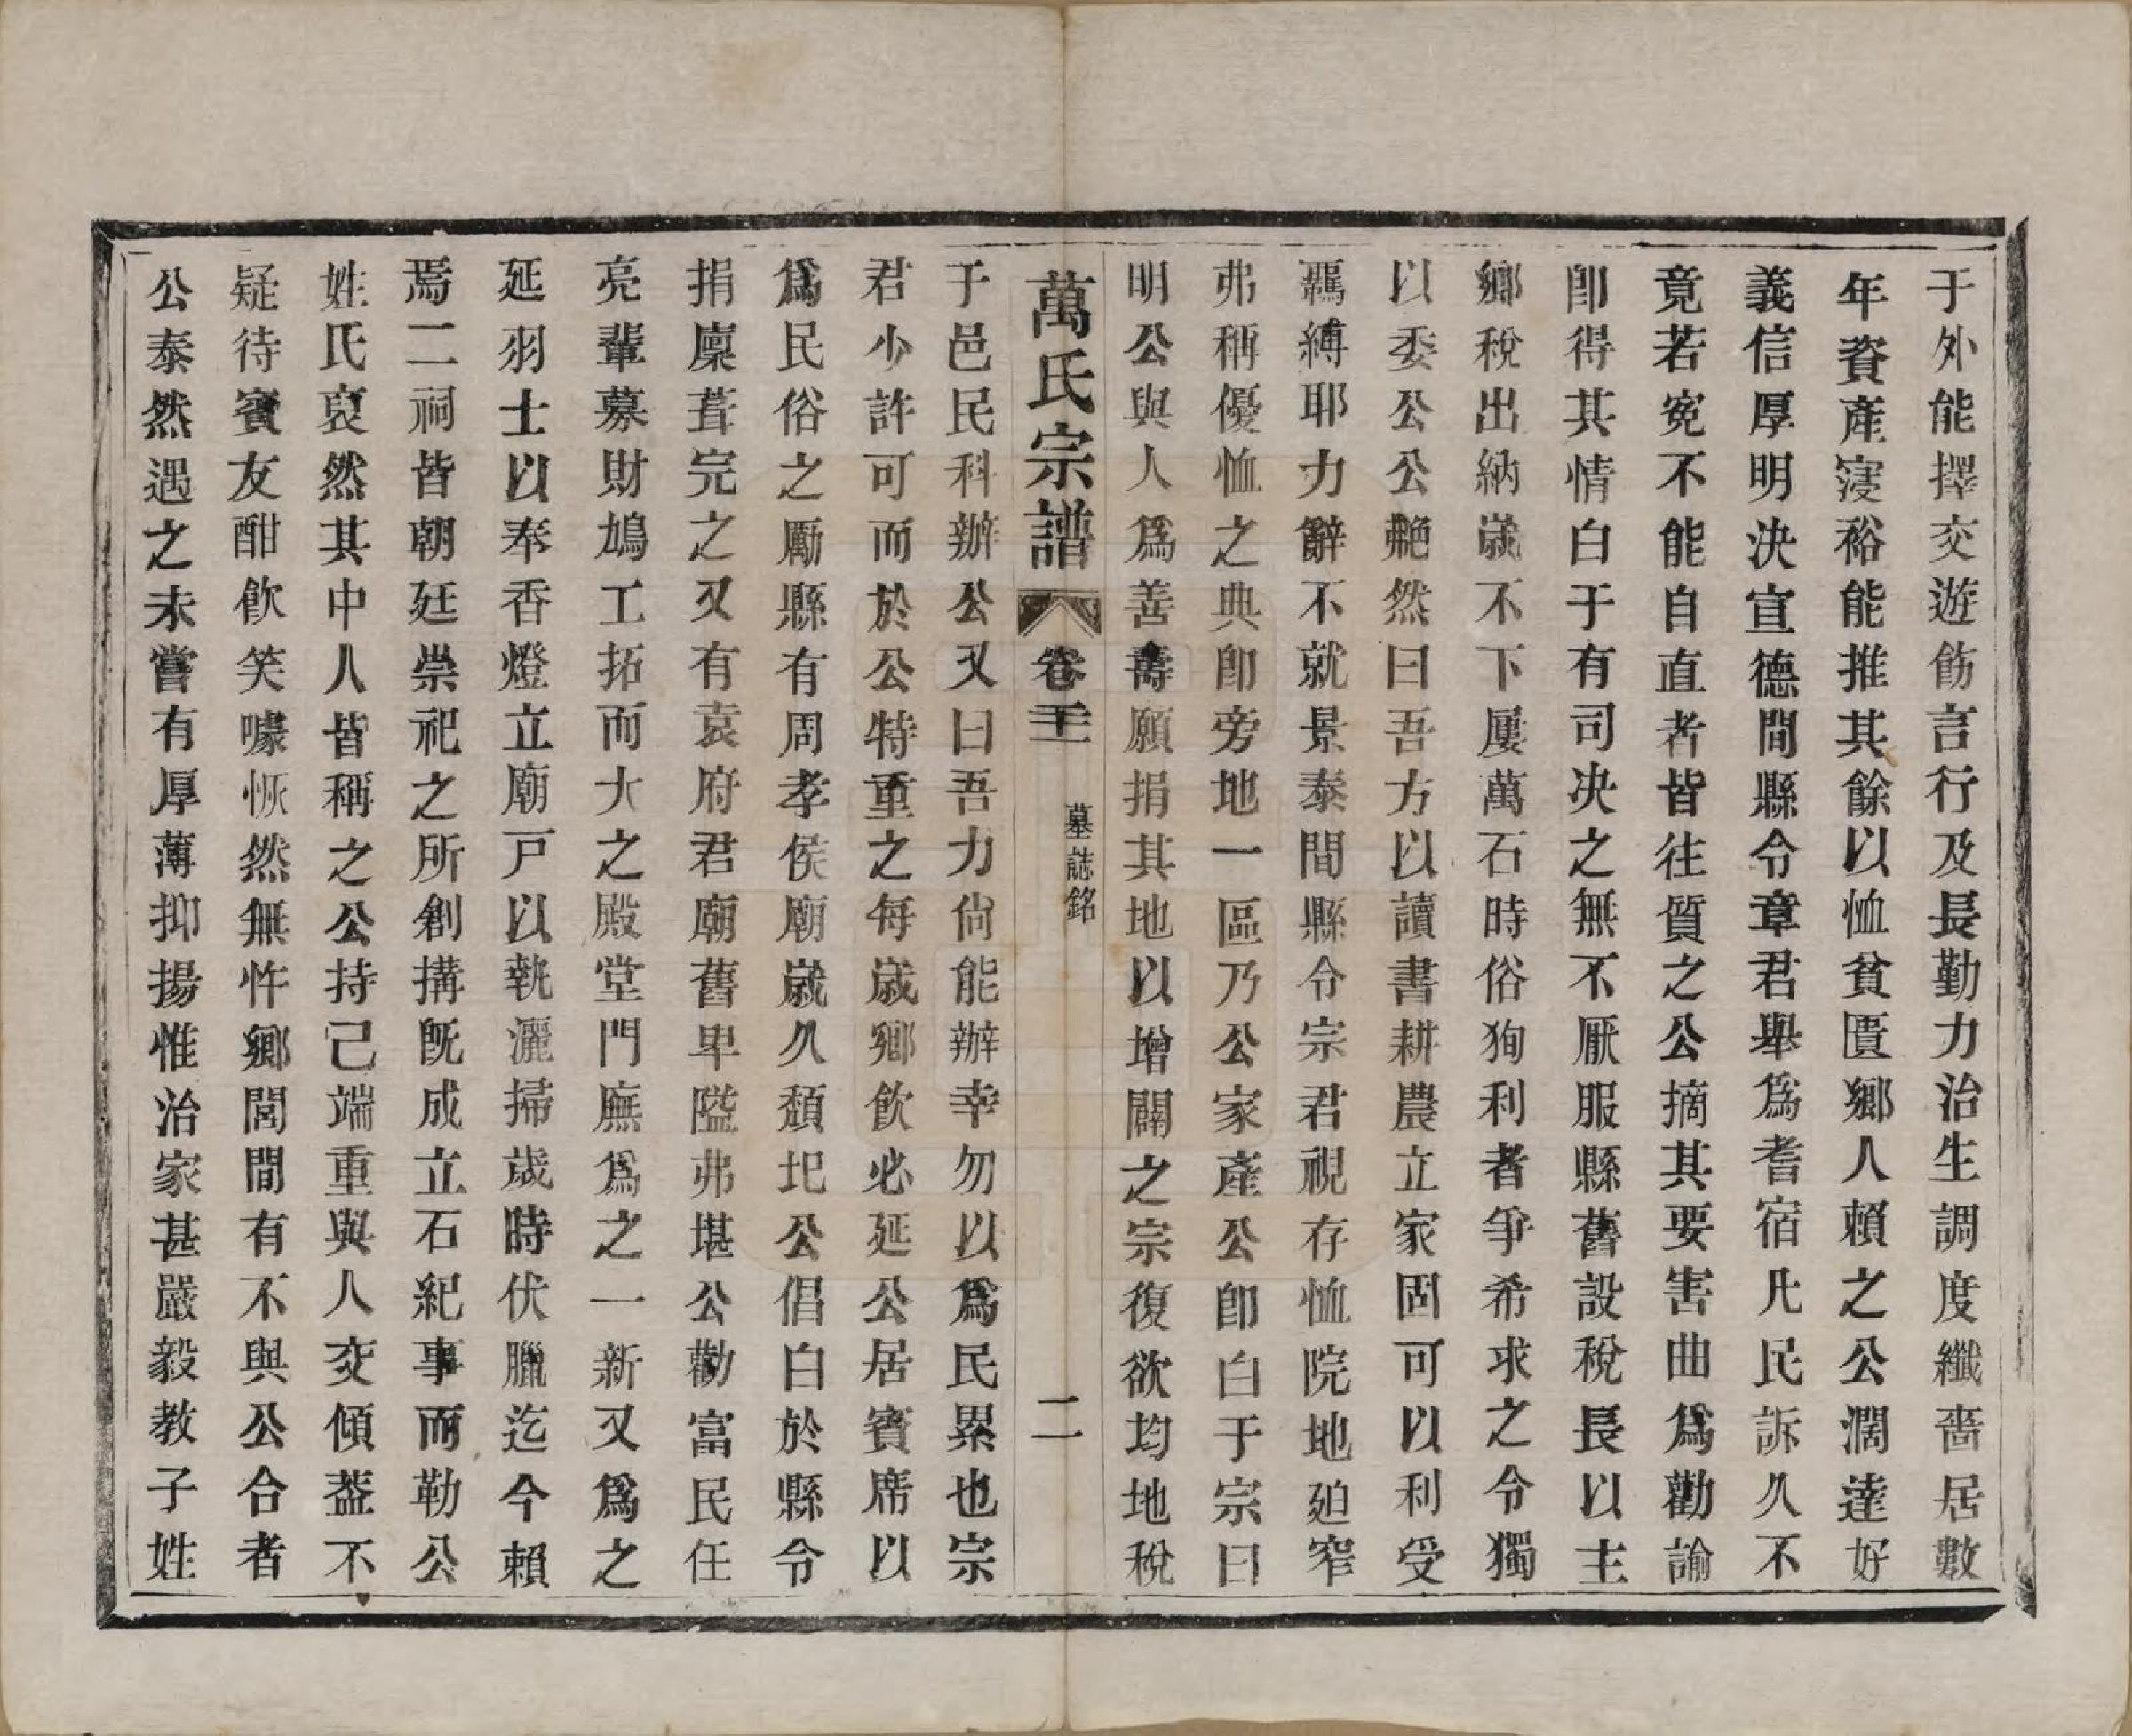 于外能擇交遊飭言行及長勤力治生調度纖嗇居數
年資產寖裕能推其餘以恤貧匱鄉人賴之公濶達好
義信厚明决宣德間縣令章君舉爲耆宿凡民訴久不
竟若寃不能自直者皆往質之公摘其要害曲爲勸諭
卽得其情白于有司决之無不厭服縣舊設稅長以主
鄉稅出納歲不下屢萬石時俗狥利者爭希求之令獨
以委公公艴然曰吾方以讀書耕農立家固可以利受
羈縛耶力辭不就景泰間縣令宗君視存恤院地廹窄
弗稱優恤之典卽旁地一區乃公家產公卽白于宗曰
明公與人爲善壽願捐其地以增闢之宗復欲均地稅
萬氏宗譜 卷二十二 墓誌銘 二
于邑民科辦公又曰吾力尙能辦幸勿以爲民累也宗
君少許可而於公特重之每歲鄉飮必延公居賓席以
爲民俗之勵縣有周孝侯廟歲久頹圯公倡白於縣令
捐廩葺完之又有袁府君廟舊卑隘弗堪公勸富民任
亮輩募財鳩工拓而大之殿堂門廡爲之一新又爲之
延羽士以奉香燈立廟戸以執灑掃歲時伏臘迄今賴
焉二祠皆朝廷崇祀之所創搆旣成立石紀事而勒公
姓氏裒然其中人皆稱之公持己端重與人交傾葢不
疑待賓友酣飮笑噱恢然無忤鄉閭間有不與公合者
公泰然遇之未嘗有厚薄抑揚惟治家甚嚴毅教子姓